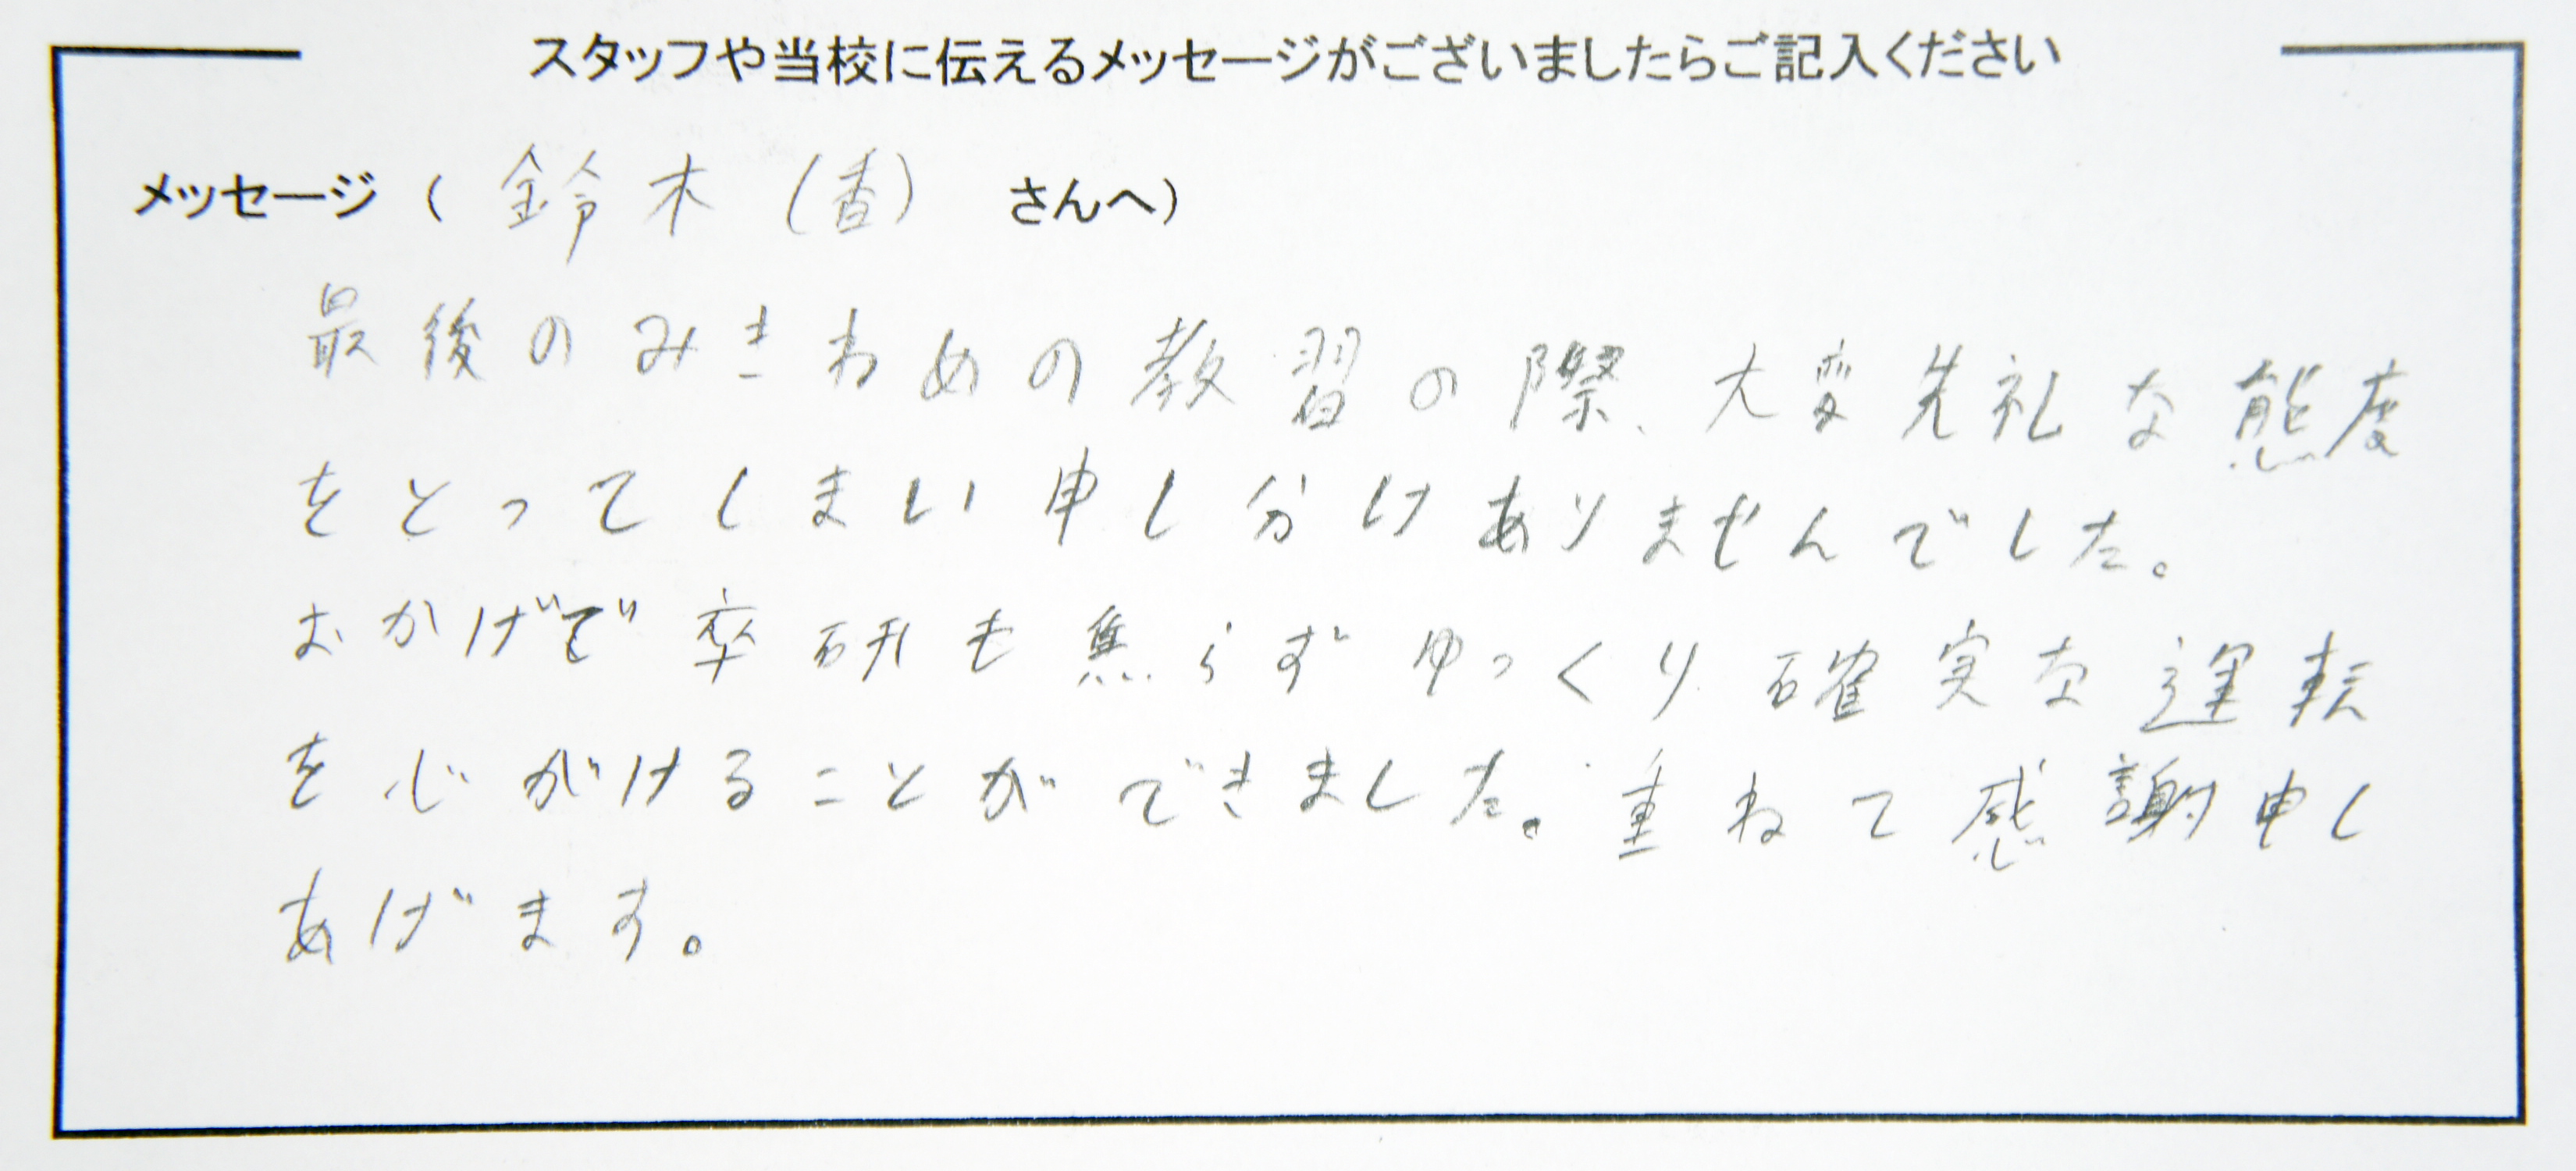 スタッフや当校に伝えるメッセージがございましたらご記入ください
メッセージ（ 鈴木（香） さんへ）
最後のみきわめの教習の際、大変失礼な態度
をとってしまい申し分けありませんでした。
おかげで卒研も焦らずゆっくり確実な運転
を心がけることができました。重ねて感謝申し
あげます。